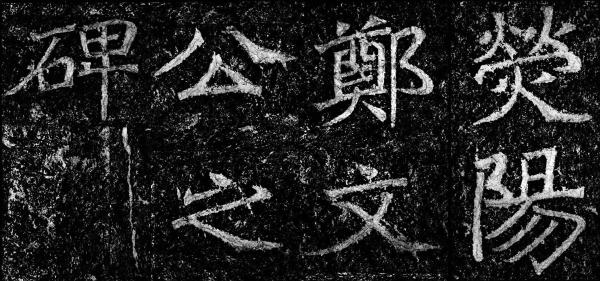 熒陽
鄭文
公之
碑